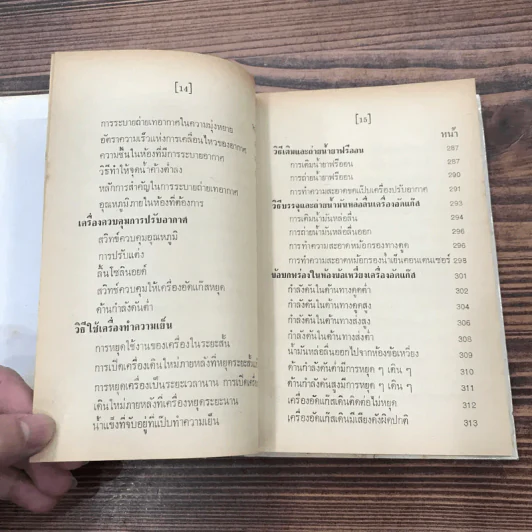 [14]
การระบายถ่ายเทอากาศในความมุ่งหมาย
อัตราความเร็วแห่งการเคลื่อนไหวของอากาศ
ความชื้นในห้องที่มีการระบายอากาศ
วิธีทำให้จุดน้ำค้างต่ำลง
หลักการสำคัญในการระบายถ่ายเทอากาศ
อุณหภูมิภายในห้องที่ต้องการ
เครื่องควบคุมการปรับอากาศ
สวิทช์ควบคุมอุณหภูมิ
การปรับแต่ง
ลิ้นโซลินอยด์
สวิทช์ควบคุมให้เครื่องอัดแก๊สหยุด
ด้านกำลังดันต่ำ
วิธีใช้เครื่องทำความเย็น
การหยุดใช้งานของเครื่องในระยะสั้น
การเปิดเครื่องเดินใหม่ภายหลังที่หยุดระยะสั้นแล้ว
การหยุดเครื่องเป็นระยะเวลานาน การเปิดเครื่อง
เดินใหม่ภายหลังที่เครื่องหยุดระยะนาน
น้ำแข็งที่จับอยู่ที่แป๊บทำความเย็น
[15]
หน้า
วิธีเติมและถ่ายน้ำยาฟรีออน 287
การเติมน้ำยาฟรีออน 287
การถ่ายน้ำยาฟรีออน 290
การทำความสะอาดขดแป๊บเครื่องปรับอากาศ 291
วิธีบรรจุและถ่ายน้ำมันหล่อลื่นเครื่องอัดแก๊ส 293
การเติมน้ำมันหล่อลื่น 294
การถ่ายน้ำมันหล่อลื่นออก 296
การทำความสะอาดหม้อกรองทางดูด 296
การทำความสะอาดหม้อกรองน้ำเย็นคอนเดนเซอร์ 298
ข้อบกพร่องในห้องข้อเหวี่ยงเครื่องอัดแก๊ส 301
กำลังดันในด้านทางดูดต่ำ 302
กำลังดันในด้านทางดูดสูง 304
กำลังดันในด้านทางส่งสูง 306
กำลังดันในด้านทางส่งต่ำ 308
น้ำมันหล่อลื่นออกไปจากห้องข้อเหวี่ยง 309
ด้านกำลังดันต่ำมีการหยุด ๆ เดิน ๆ 310
ด้านกำลังดันสูงมีการหยุด ๆ เดิน ๆ 311
เครื่องอัดแก๊สเดินติดต่อไม่หยุด 312
เครื่องอัดแก๊สเดินมีเสียงดังผิดปกติ 313